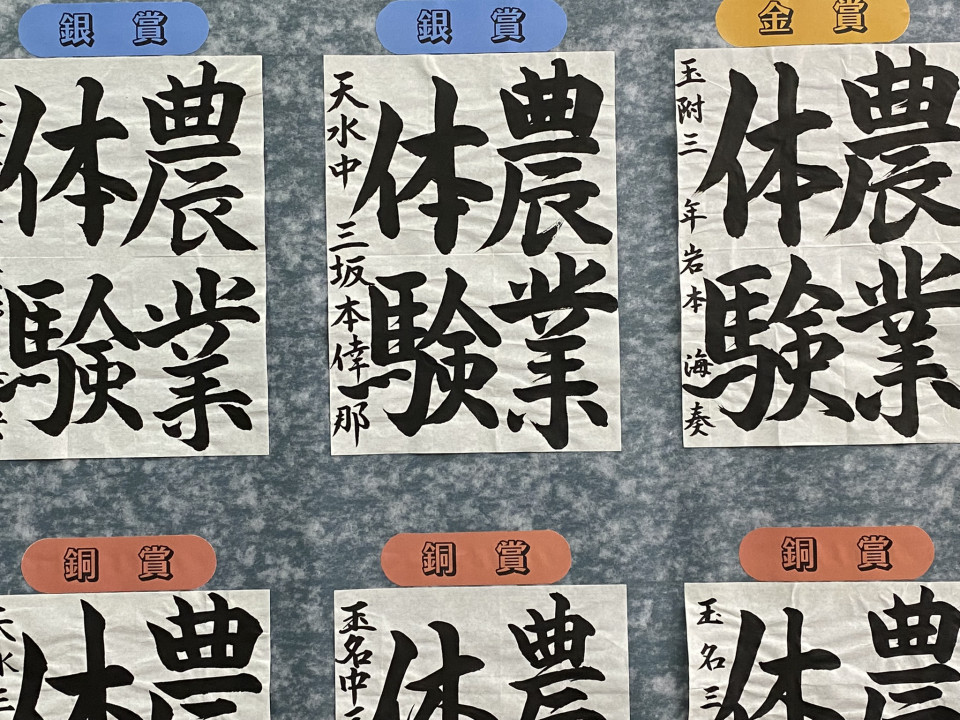 銀賞
銀賞
金賞
農業
体験
農業
体験
天水中 三 坂本倖那
農業
体験
玉附三年 岩本海奏
銅賞
銅賞
銅賞
農
体
天水三
農
体
玉名中三
農
体
玉名三